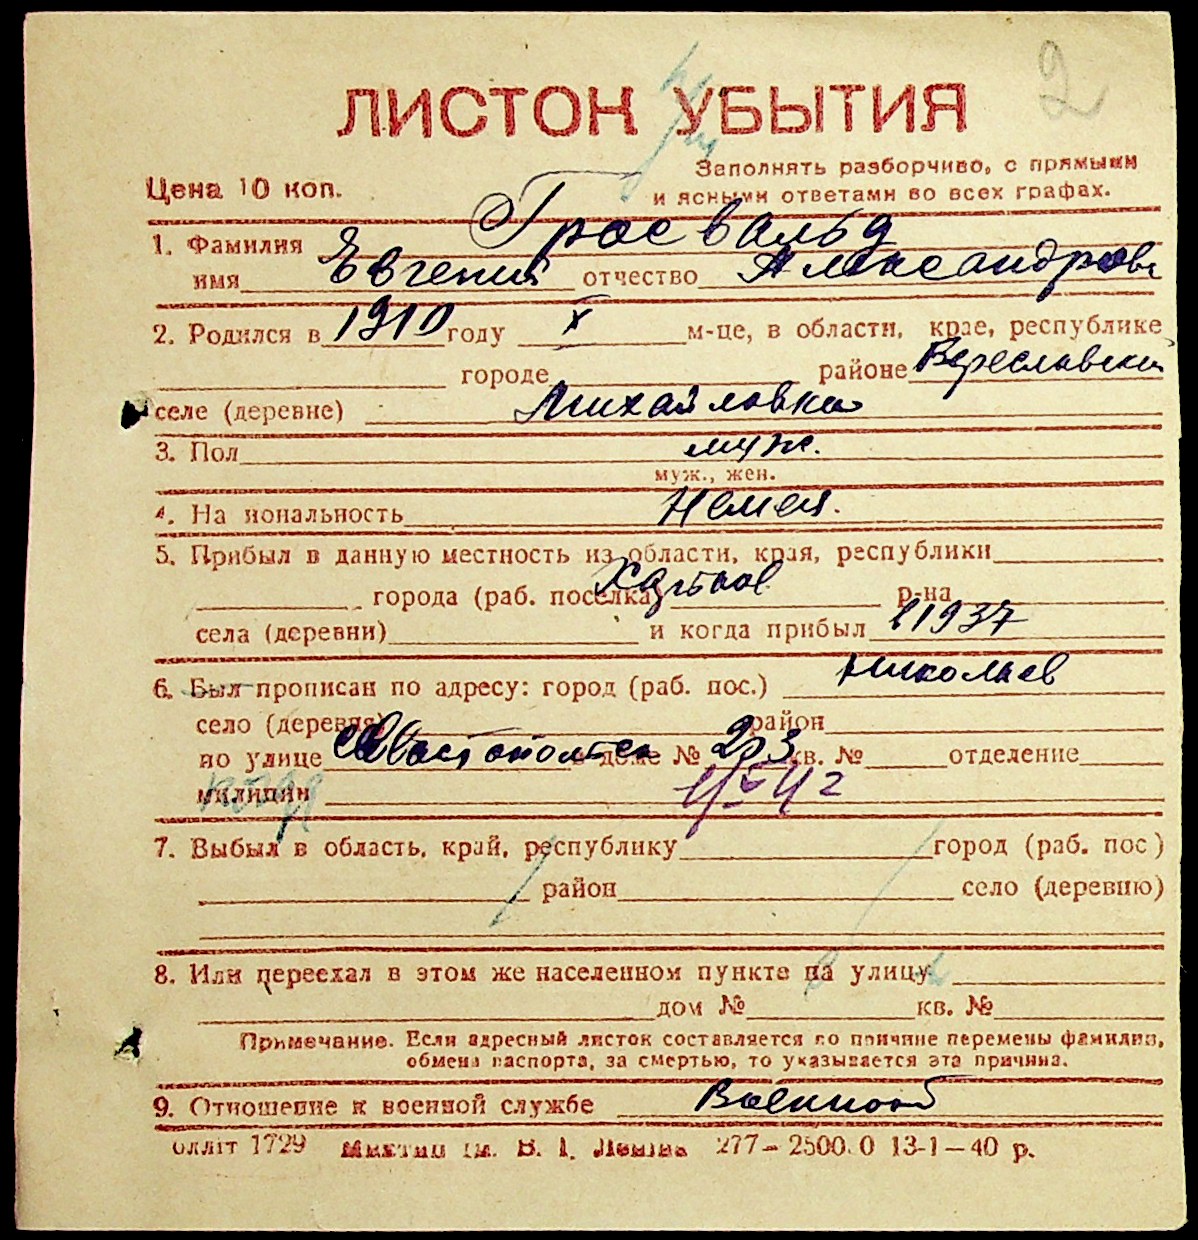 2
ЛИСТОК УБЫТИЯ
Заполнять разборчиво, с прямыми
Цена 10 коп. и ясными ответами во всех графах.
1. Фамилия Грасвальд
имя Евгений отчество Александров
2. Родился в 1910 году X м-це, в области, крае, республике
городе районе Береславский
селе (деревне) Михайловка
3. Пол муж.
муж., жен.
4. Национальность Немец.
5. Прибыл в данную местность из области, края, республики
города (раб. поселка) Харьков р-на
села (деревни) и когда прибыл в 1937
6. Был прописан по адресу: город (раб. пос.) Николаев
село (деревня) район
по улице Севастопольск в доме № 203 кв. № отделение
милиции
7. Выбыл в область, край, республику город (раб. пос)
район село (деревню)
8. Или переехал в этом же населенном пункте на улицу
дом № кв. №
Примечание. Если адресный листок составляется по причине перемены фамилии,
обмена паспорта, за смертью, то указывается эта причина.
9. Отношение к военной службе Военнооб
олліт 1729 ім. В. І. Леніна 277–2500.0 13-1–40 р.